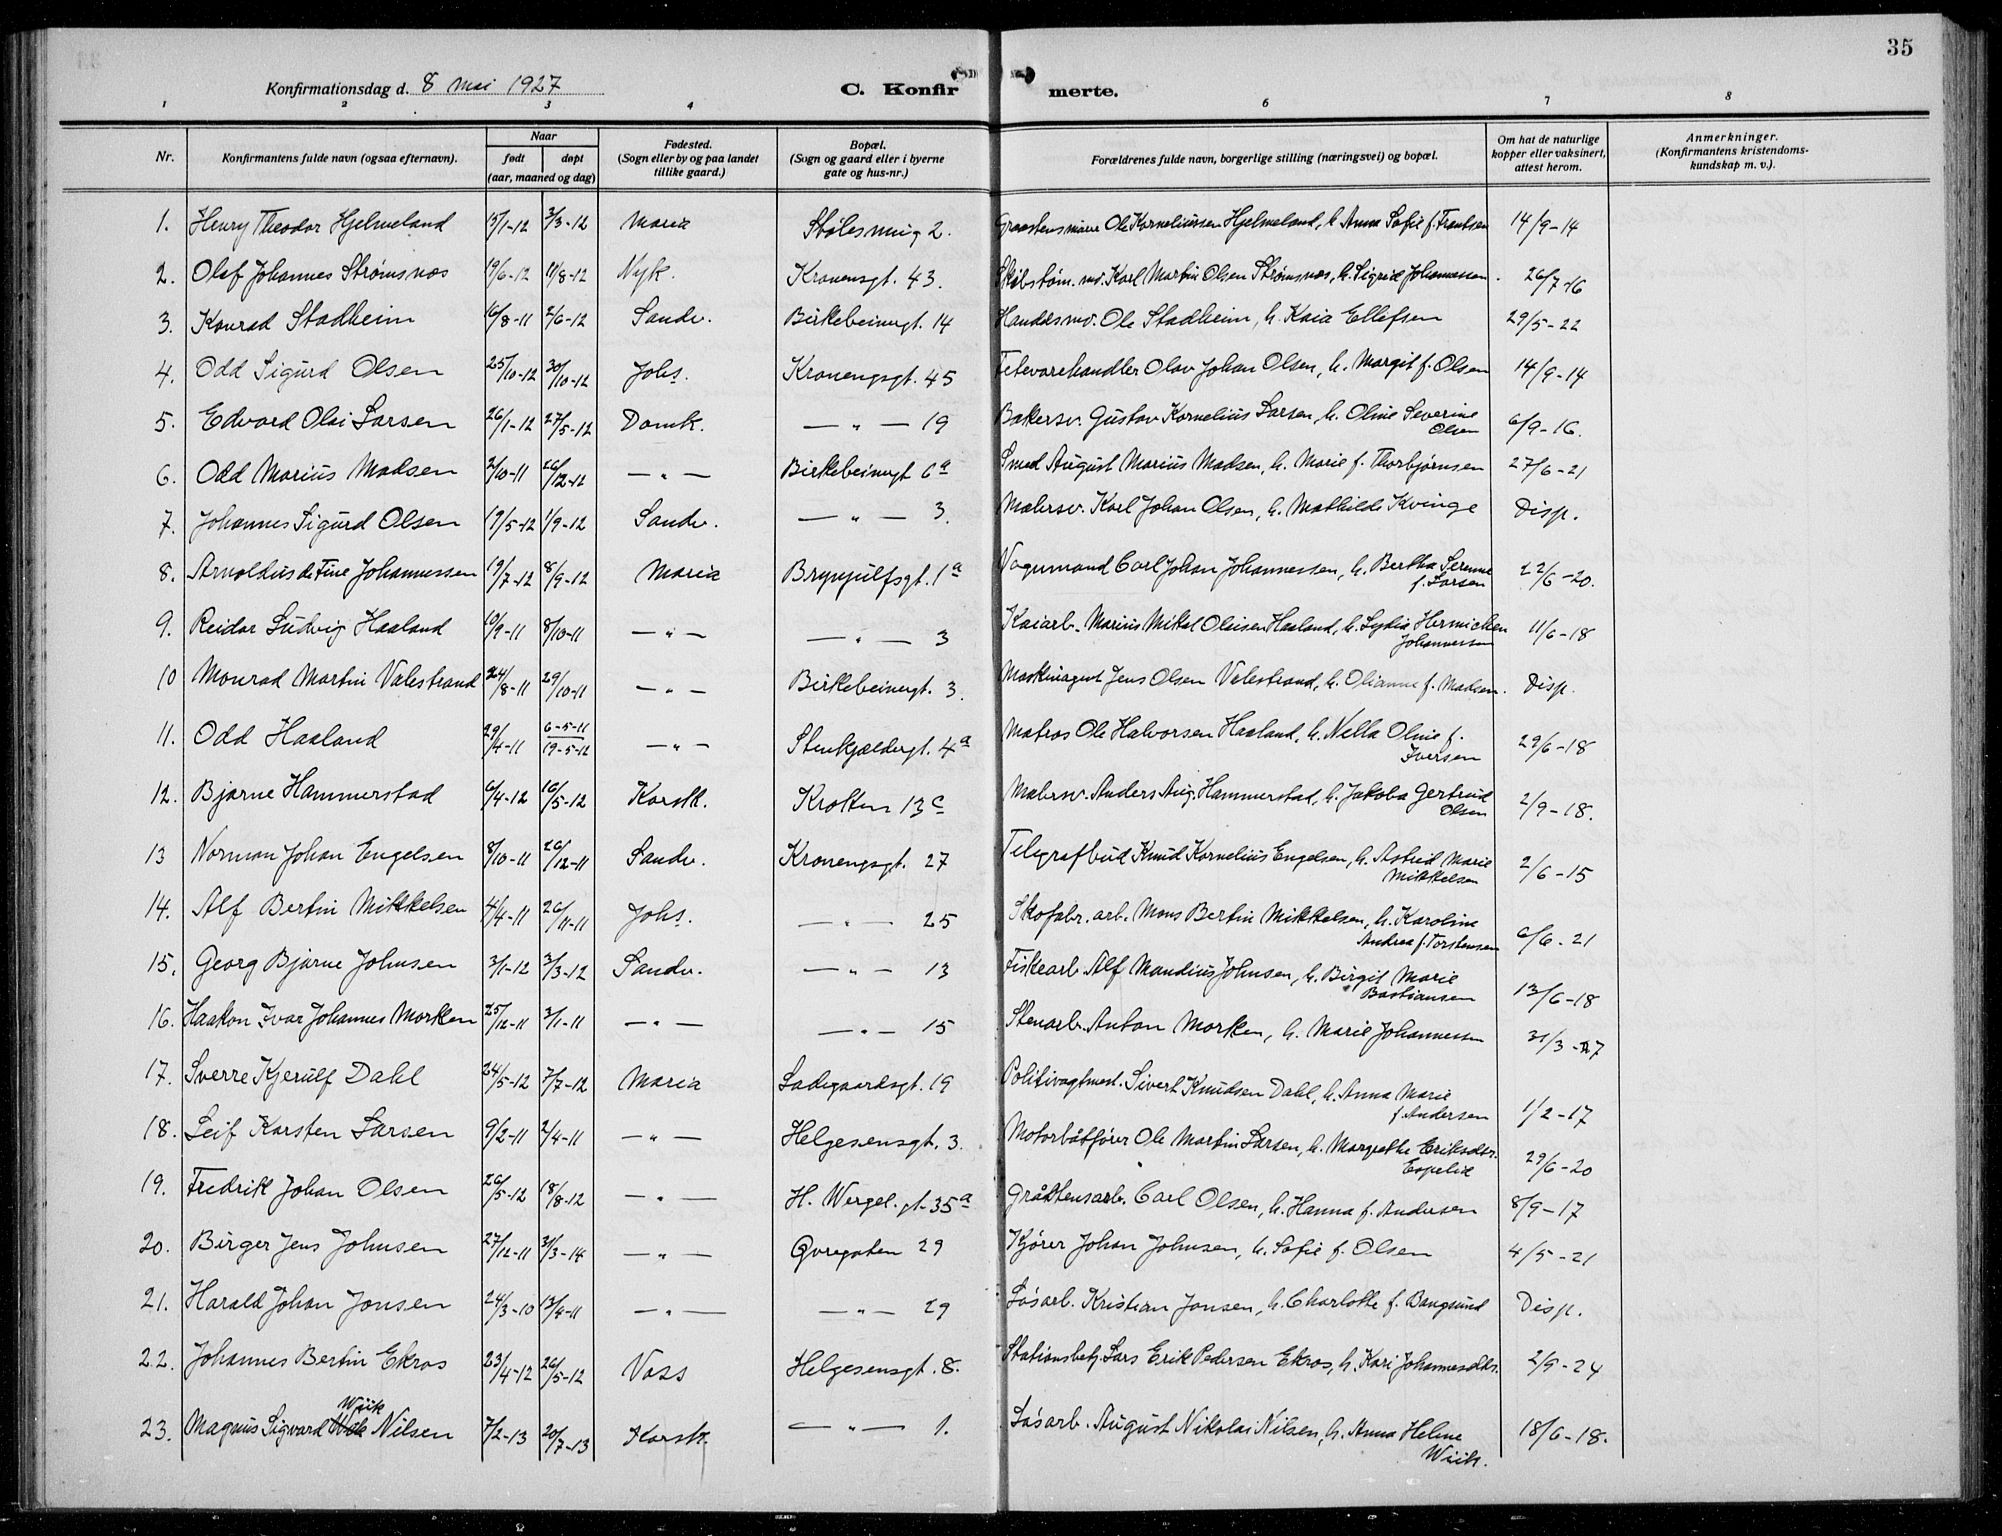 35
Konfirmationsdag d. 8 mai 1927 C. Konfirmerte.
1 2 3 4 6 7 8
Nr. Konfirmantens fulde navn (ogsaa efternavn). Naar født døpt (aar, maaned og dag) Fødested. (Sogn eller by og paa landet tillike gaard.) Bopæl. (Sogn og gaard eller i byerne gate og hus-nr.) Forældrenes fulde navn, borgerlige stilling (næringsvei) og bopæl. Om hat de naturlige kopper eller vaksinert, attest herom. Anmerkninger. (Konfirmantens kristendomskundskap m. v.).
1. Henry Theodor Hjelmeland 15/1-12 3/3-12 Maria Stølesmug 2. Ole Korneliussen Hjelmeland, h. Anna Sofie f. Frantsen 14/9-14
2. Olaf Johannes Strømsnæs 19/6-12 11/8-12 Nyk. Kronengsgt. 43. Karl Martin Olsen Strømsnæs, h. Sigrid Johannessen. 26/7-16
3. Konrad Stadheim 16/8-11 2/6-12 Sandv. Birkebeinergt. 14 Handelsmd. Ole Stadheim, h. Kaia Ellefsen 29/5-22
4. Odd Sigurd Olsen 25/10-12 30/10-12 Johs. Kronengsgt. 45 Fetevarehandler Olav Johan Olsen, h. Margit f. Olsen 14/9-14
5. Edvard Olai Larsen 26/1-12 27/5-12 Domk. — " — 19 Bakersv. Gustav Kornelius Larsen, h. Oline Severine Olsen 6/9-16.
6. Odd Marius Madsen 2/10-11 26/12-12 — " — Birkebeinergt 6a Smed August Marius Madsen, h. Marie f. Thorbjørnsen 27/6-21
7. Johannes Sigurd Olsen 19/5-12 1/9-12 Sandv. — " — 3. Malersv. Karl Johan Olsen, h. Mathilde Kvinge Disp.
8. Arnoldus de Fine Johannessen 19/7-12 8/9-12 Maria Brynjulfsgt. 1a Vognmand Carl Johan Johannessen, h. Bertha Serenne f. Larsen 22/6-20.
9. Reidar Ludvig Haaland 10/9-11 8/10-11 — " — — " — 3 Kaiarb. Marius Mikal Olaisen Haaland, h. Lydia Hermichen Johannessen 11/6-18
10 Monrad Martin Valestrand 24/8-11 29/10-11 — " — Birkebeinergt. 3. Maskinagent Jens Olsen Valestrand, h. Olianna f. Madsen. Disp.
11. Odd Haaland 29/4-11 6-5-11 19-5-12 — " — Stenkjeldergt. 4a Matros Ole Halvorsen Haaland, h. Nella Oline f. Iversen 29/6-18
12. Bjarne Hammerstad 6/4-12 16/5-12 Korsk. Krotten 13c Malersv. Anders Aug. Hammerstad, h. Jakoba Gertrud Olsen 2/9-18.
13 Norman Johan Engelsen 8/10-11 26/12-11 Sandv. Kronengsgt. 27 Telegrafbud Knud Kornelius Engelsen, h. Astrid Marie Mikkelsen 2/6-15
14. Alf Bertin Mikkelsen 4/4-11 26/11-11 Johs. — " — 25 Skofabr. arb. Mons Bertin Mikkelsen, h. Karoline Andrea f. Torstensen 6/6-21
15. Georg Bjarne Johnsen 3/1-12 3/3-12 Sandv. — " — 13 Fiskearb. Alf Mandius Johnsen, h. Birgit Marie Bastiansen 13/6-18
16. Haakon Ivar Johannes Morken 25/12-11 3/1-11 — " — — " — 15 Stenarb. Anton Morken, h. Marie Johannessen 31/3-27
17. Sverre Kjerulf Dahl 24/5-12 7/7-12 Maria Ladegaardsgt. 19 Politivagtmest. Sivert Knudsen Dahl, h. Anna Marie f. Andersen 1/2-17
18. Leif Karsten Larsen 9/2-11 2/4-11 — " — Helgesensgt. 3. Motorbåtfører Ole Martin Larsen, h. Margrethe Eriksdtr. Espelid 29/6-20
19. Fredrik Johan Olsen 26/5-12 18/8-12 — " — H. Wergel. gt. 35a Gråstensarb. Carl Olsen, h. Hanna f. Andersen 8/9-17
20. Birger Jens Johnsen 27/12-11 31/3-14 — " — Øvregaten 29 Kjører Johan Johnsen, h. Sofie f. Olsen 4/5-21
21. Harald Johan Jonsen 24/3-10 17/4-11 — " — — " — 29 Løsarb. Kristian Jonsen, h. Charlotte f. Bangsund Disp.
22. Johannes Bertin Ekros 23/4-12 26/5-12 Voss Helgesensgt. 8. Stationsbetj. Lars Erik Pedersen Ekros, h. Kari Johannesdtr. 2/9-24
23. Magnus Sigvard Wiik Nilsen 7/2-13 20/7-13 Korsk. — " — 1. Løsarb. August Nikolai Nilsen, h. Anna Helene Wiik. 18/6-18.